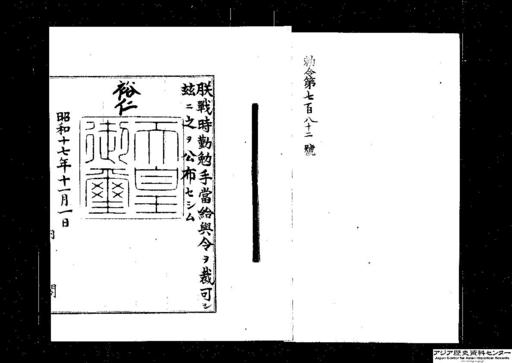 勅令第七百八十二號
朕戰時勤勉手當給與令ヲ裁可シ
玆ニ之ヲ公布セシム
裕仁
天皇
御璽
昭和十七年十一月一日
内閣
アジア歴史資料センター
Japan Center for Asian Historical Records